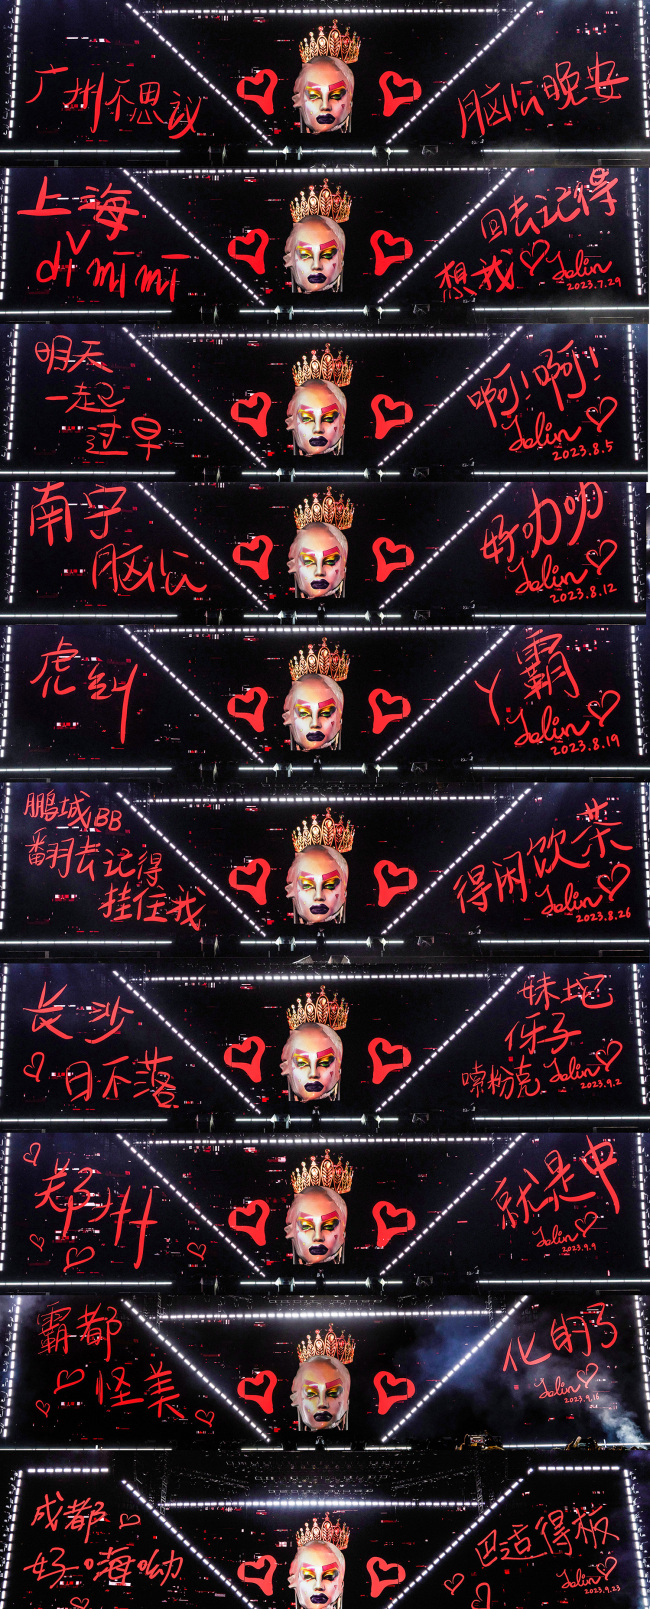 广州不思议
脑公晚安
上海
dǐ mī mī
回去记得
想我
Jolin
2023.7.29
明天
一起
过早
啊!啊!
Jolin
2023.8.5
南宁
脑公
好叻叻
Jolin
2023.8.12
虎纠
丫霸
Jolin
2023.8.19
鹏城BB
翻去记得
挂住我
得闲饮茶
Jolin
2023.8.26
长沙
日不落
妹坨
伢子
嗦粉克
Jolin
2023.9.2
郑州
就是中
Jolin
2023.9.9
霸都
怪美
Jolin
2023.9.16
成都
好嗨呦
巴适得板
Jolin
2023.9.23